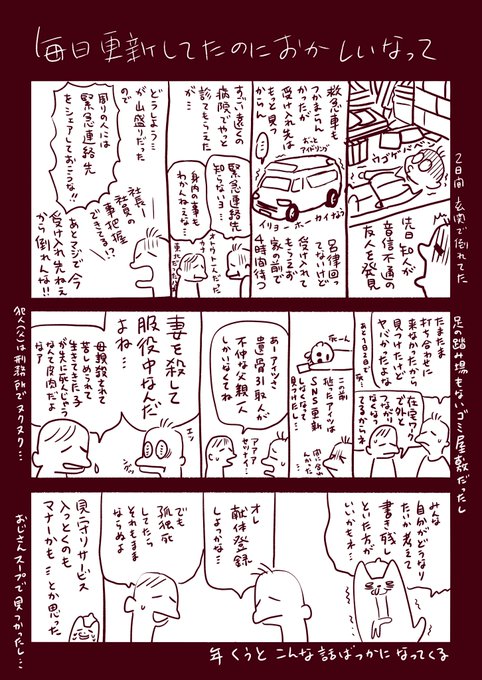 毎日更新してたのにおかしいなって
先日知人が
音信不通の
友人を発見
ウゴケ
2日間 玄関で倒れてた
救急車も
つかまらん
かったが
受け入れ先は
もっと見つ
からん
ずっと
アイドリング
イリョーホーカイなう
呂律回っ
てないけど
受け入れて
もらえず
家の前で
4時間待つ
すっごい遠くの
病院でやっと
診てもらえた
が…
緊急連絡先
知らないヨ…
身内の事も
わかんねぇな…
オトウトこんだった
どうしよう…
が山盛りだった
ので
周りの人には
緊急連絡先
をシェアしておこうな!!
社長〜
社員の
事把握
できてる!?
あとマジで今
受け入れ先ねえ
から倒れんな!!
足の踏み場もないゴミ屋敷だったし
たまたま
打ち合わせに
来なかったから
見つけたけど
ヤバかったよな
あと1日2日で
死…
在宅ワーク
で外と
つながり
なくなっ
てるからネ
この前
死んだアイツは
SNS更新
しなくなって
見つけたし
間に合わ
んかった
あーアイツさ
遺骨引取人が
不仲な父親一人
しかいなくてね
アアア
セツナイ…
妻を殺して
服役中なんだ
よね…
エッ
母親殺されて
苦しめられて
生きてきた子
が先に死んじゃう
なんて皮肉だよ
なア
犯人(父)は刑務所でヌクヌク…
みんな
自分がどうなり
たいか考えて
書き残し
といた方が
いいかもネ…
オレ
献体登録
しよっかな…
でも
孤独死
してたら
それもまま
ならぬよ
見守りサービス
入っとくのも
マナーかも…とか思った
おじさんスープで見つかったし…
年くうとこんな話ばっかになってくる